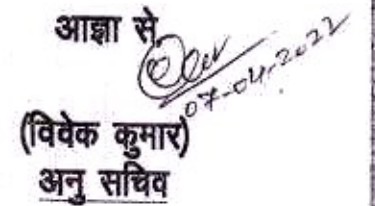 आज्ञा से,
07-04-2022
(विवेक कुमार)
अनु सचिव